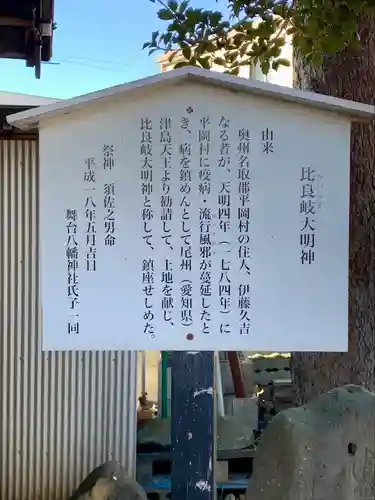 比良岐大明神
由来
奥州名取郡平岡村の住人、伊藤久吉
なる者が、天明四年（一七八四年）に
平岡村に疫病・流行風邪が蔓延したと
き、病を鎮めんとして尾州（愛知県）
津島天王より勧請して、土地を献じ、
比良岐大明神と称して、鎮座せしめた。
祭神 須佐之男命
平成一八年五月吉日
舞台八幡神社氏子一同